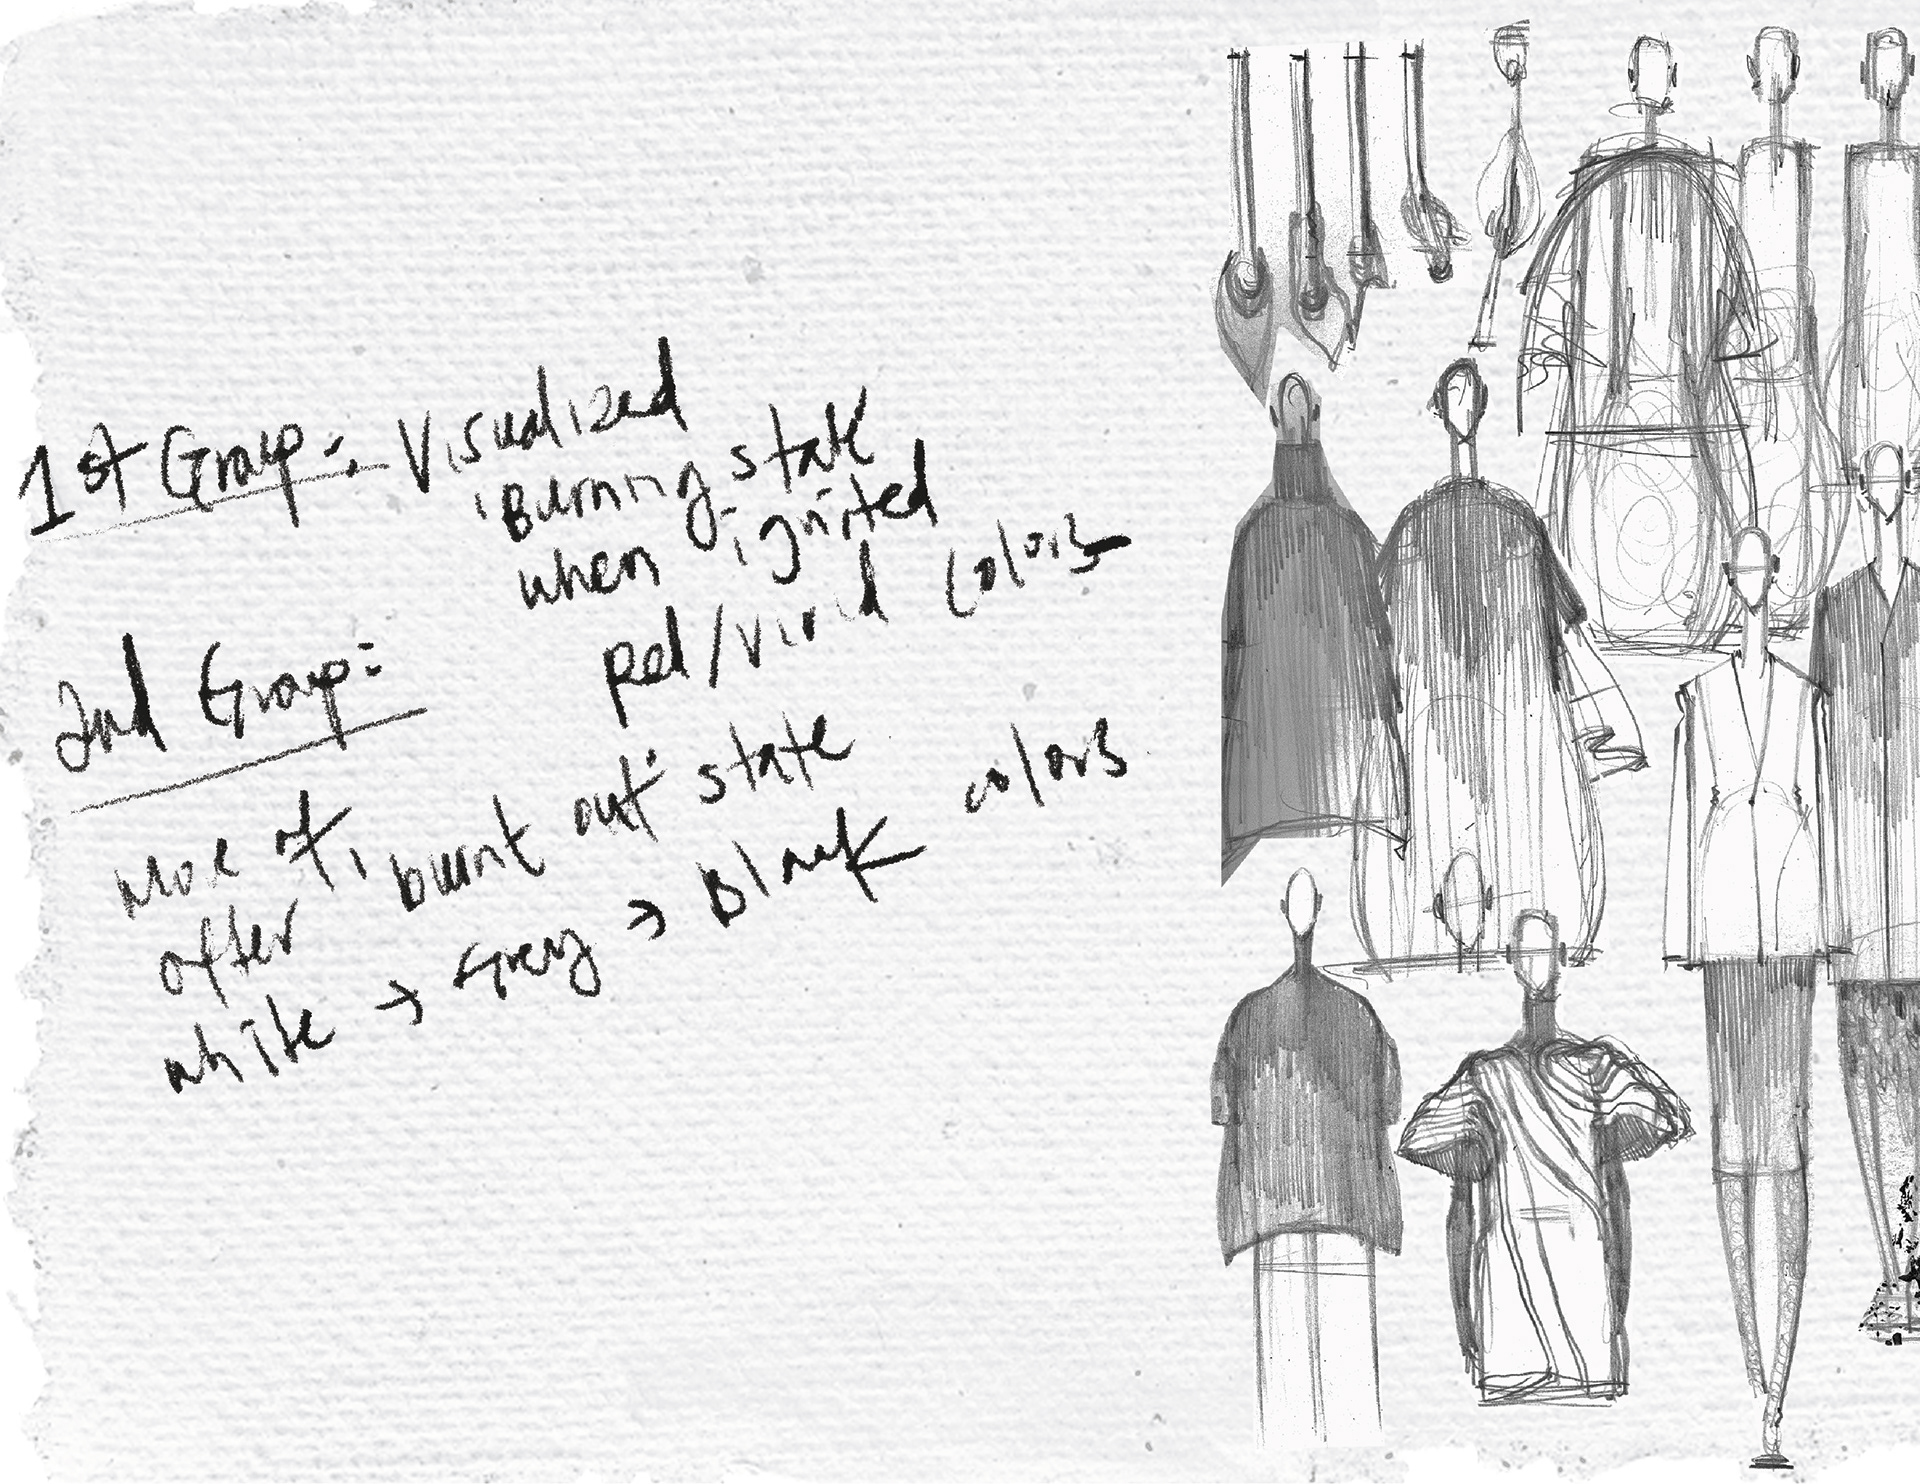 1st Group:- Visualized
'Burning state'
when ignited
Red/vivid colors
2nd Group:
More of, 'burnt out' state
after
white → Grey → Black colors